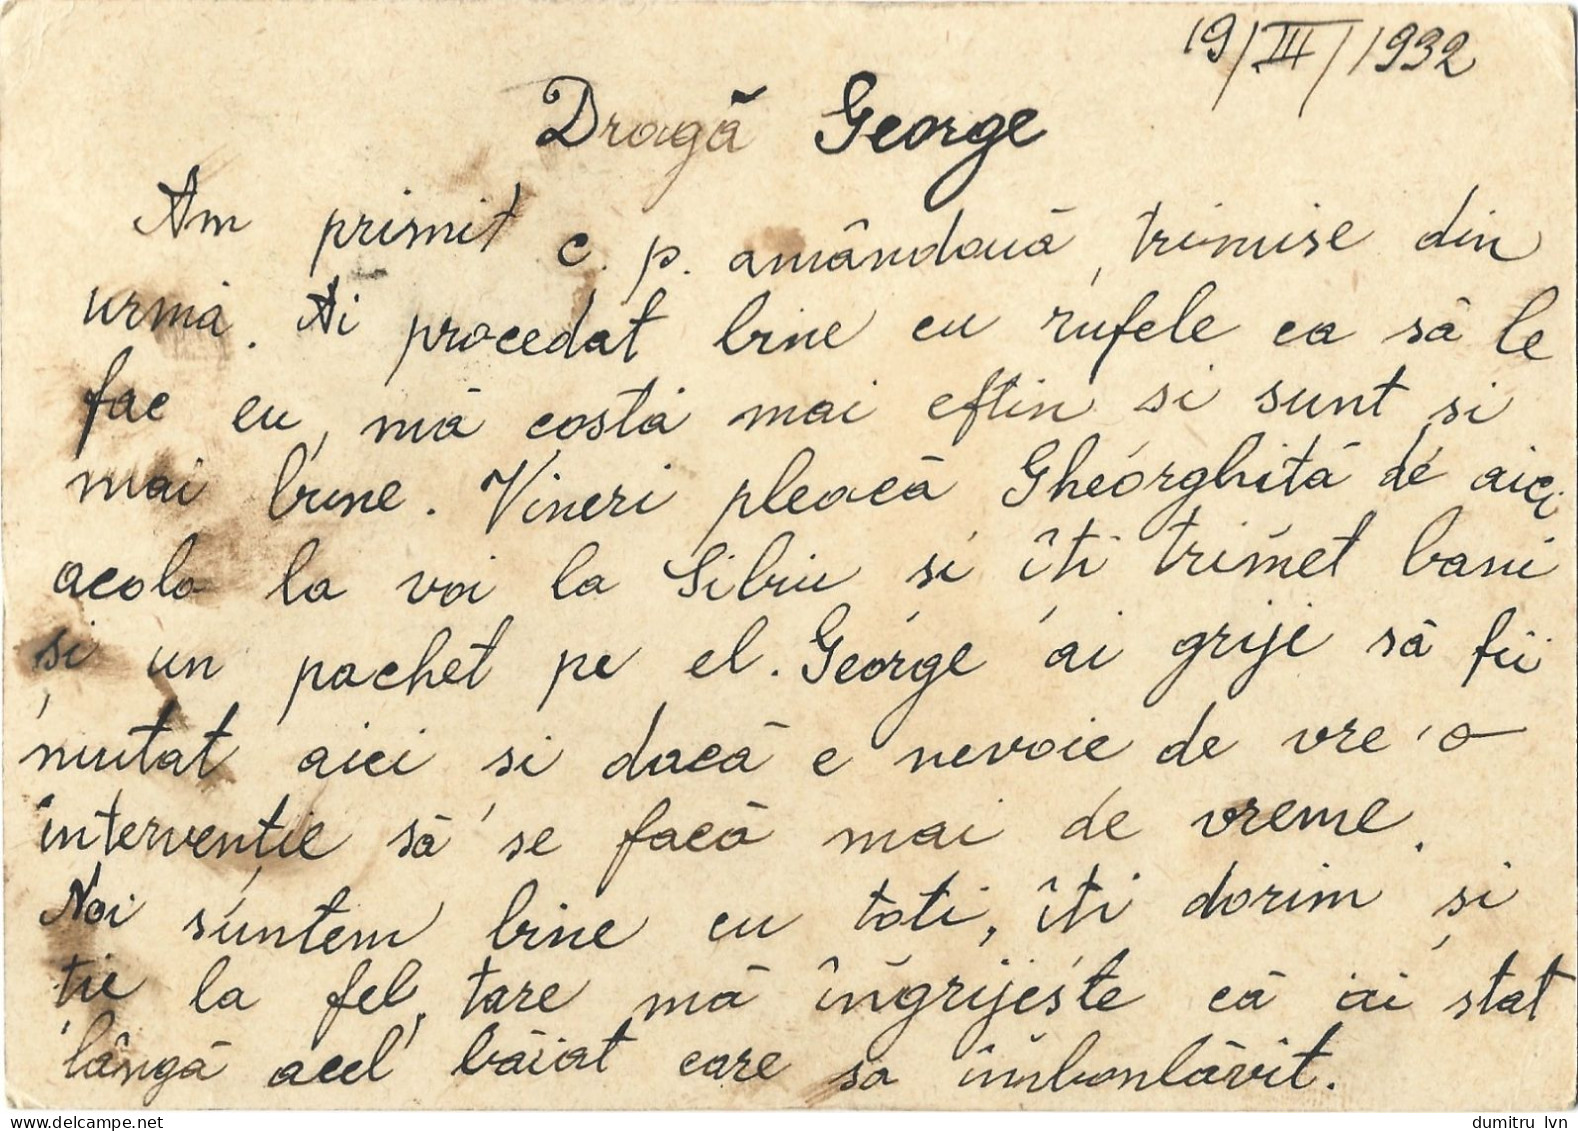 19/III/1932
Dragă George
Am primit c. p. amândouă, trimise din
urmă. Ai procedat bine cu rufele ca să le
fac eu, mă costă mai eftin si sunt si
mai bune. Vineri pleacă Gheorghită de aici
acolo la voi la Sibiu si îti trimet bani
și un pachet pe el. George ai grije să fii
mutat aici si dacă e nevoie de vre-o
intervenție să se facă mai de vreme.
Noi suntem bine cu toti, îti dorim și
ție la fel, tare mă îngrijește că ai stat
lângă acel băiat care sa îmbonlăvit.
dumitru lvn